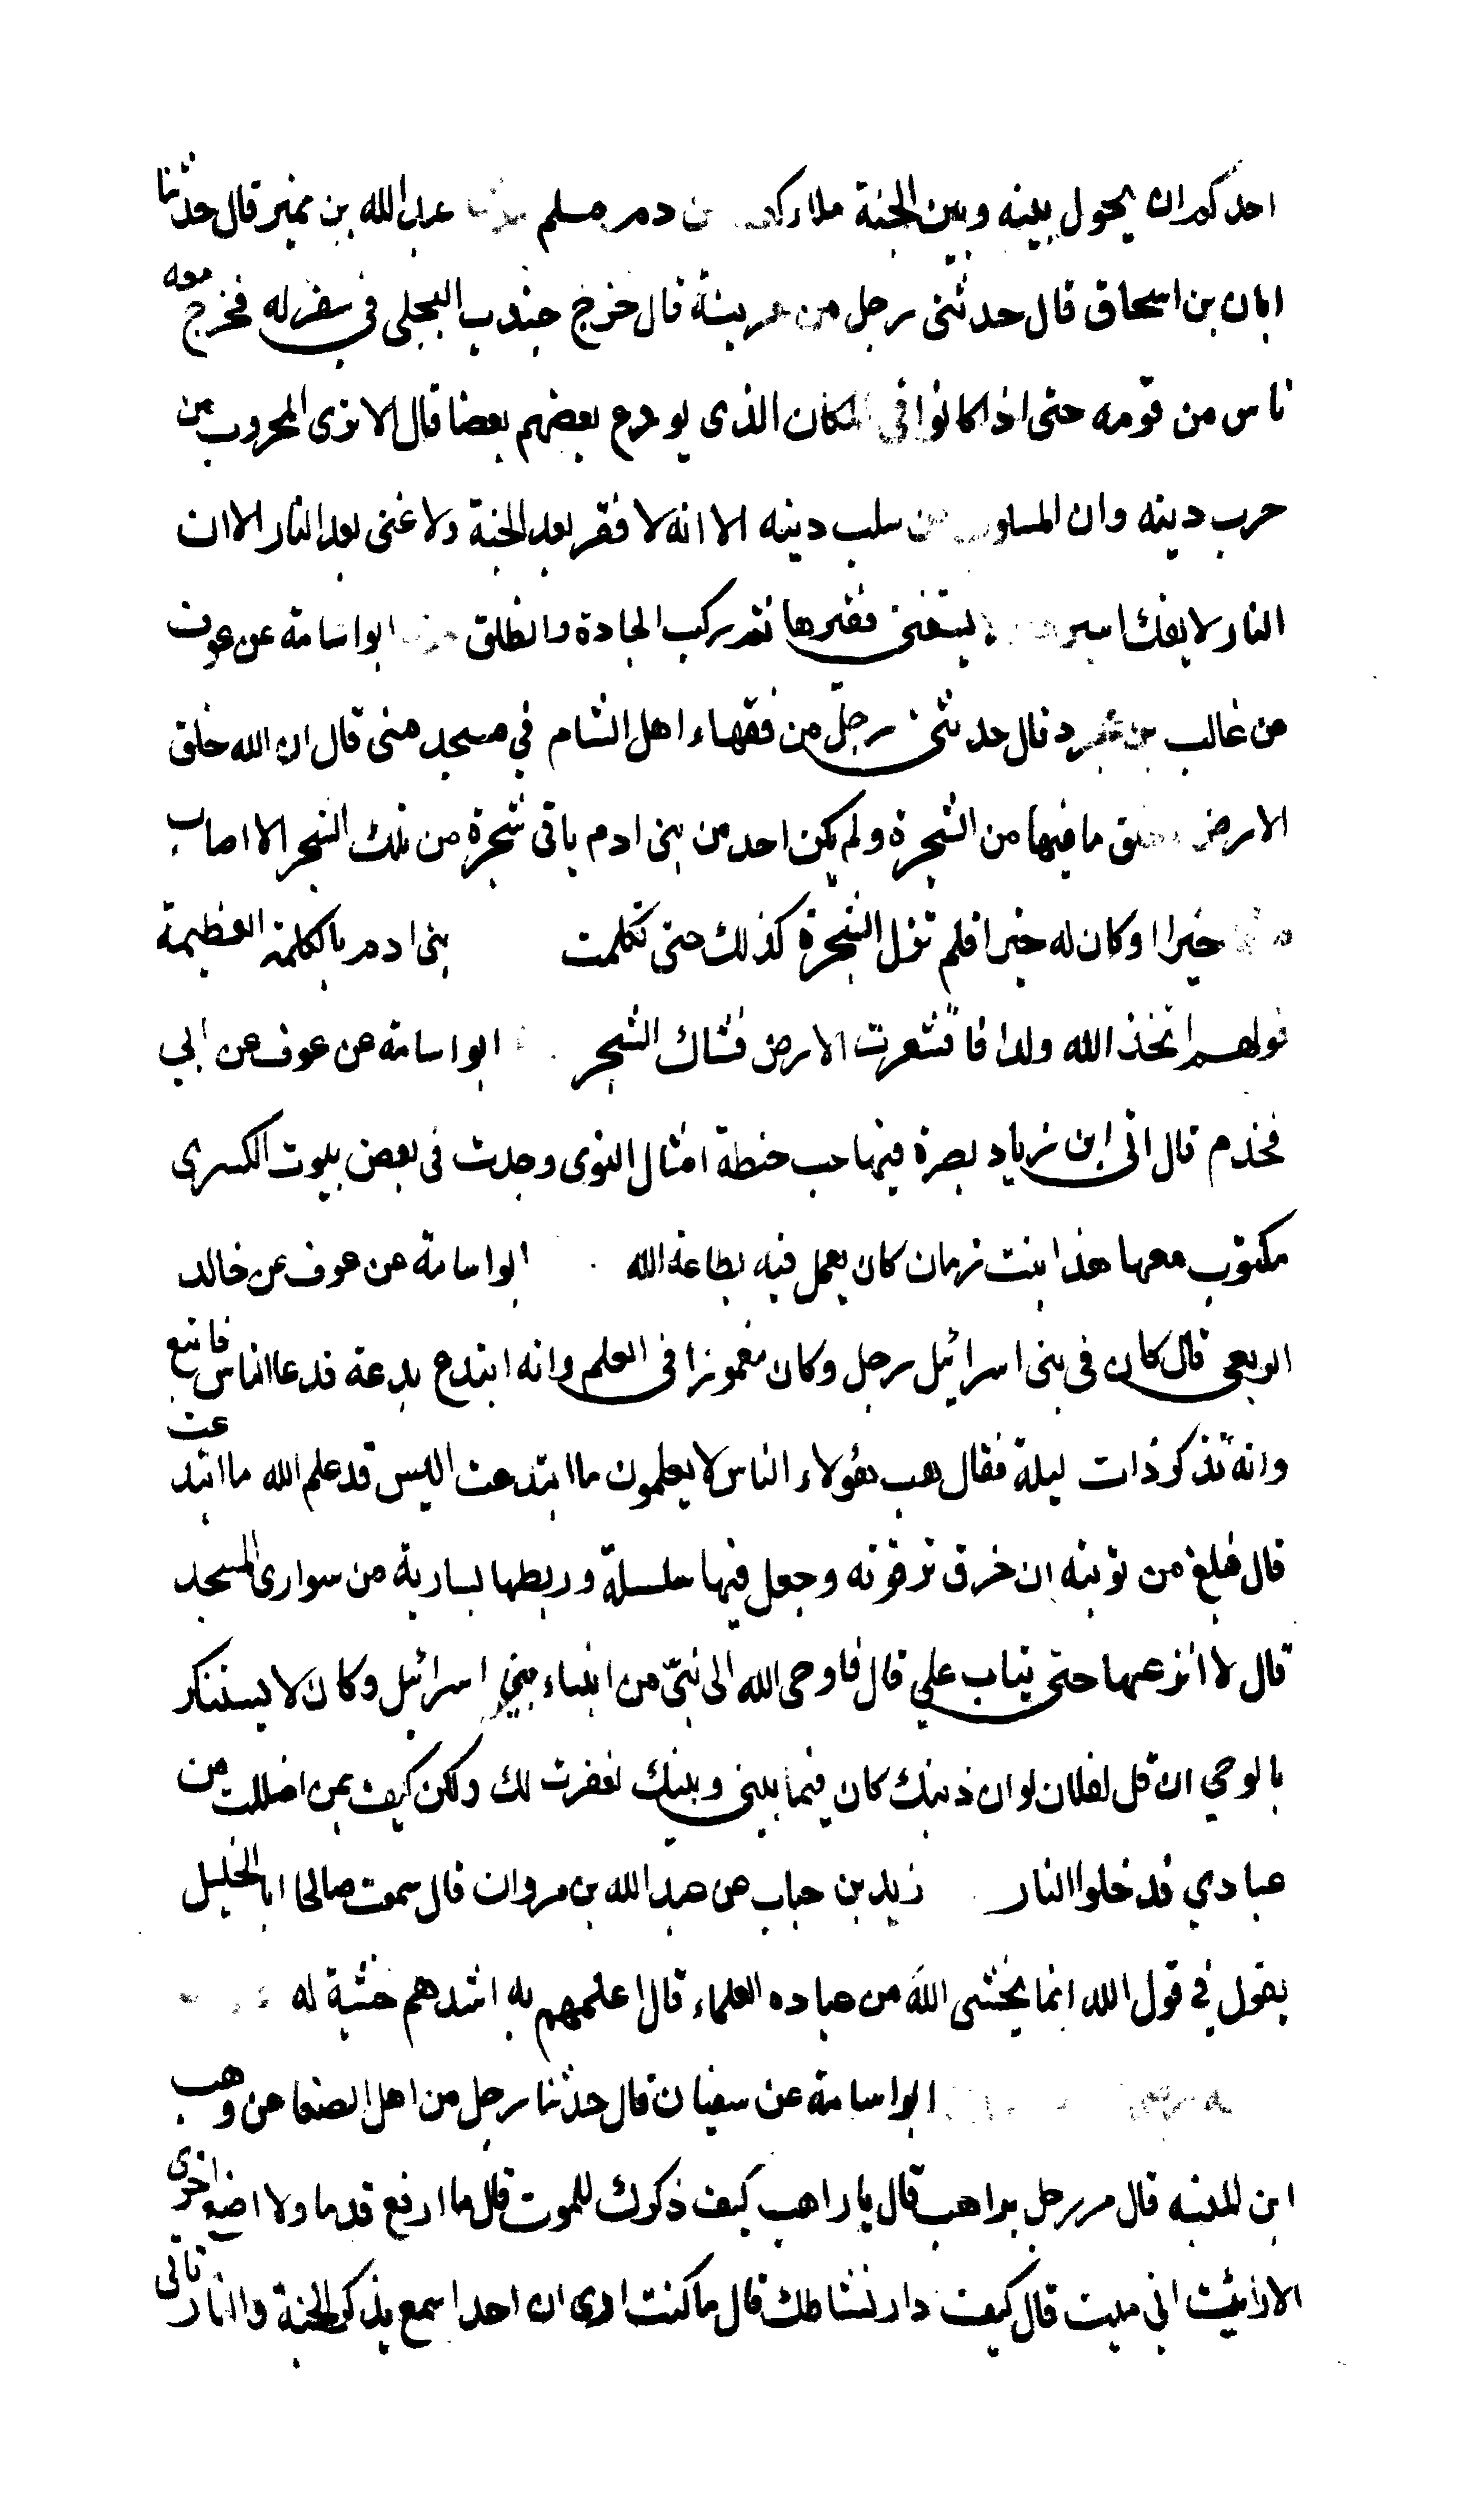 احدكم ان يحول بينه وبين الجنة ملأ كف من دم مسلم عبد الله بن نمير قال حدثنا
ابان بن اسحاق قال حدثنى رجل من عرينة قال خرج جندب البجلى فى سفر له فخرج معه
ناس من قومه حتى اذا كانوا فى المكان الذى يودع بعضهم بعضا قال الا ترى المحروب من
حرب دينه وان المسلوب من سلب دينه الا انه لا فقر بعد الجنة ولا غنى بعد النار الا ان
النار لا يفك اسيرها ولا يستغنى فقيرها ثم ركب الجادة وانطلق ابو اسامة عن عوف
عن غالب بن عجرد قال حدثنى رجل من فقهاء اهل الشام في مسجد منى قال ان الله خلق
الارض وخلق ما فيها من الشجرة ولم يكن احد من بنى ادم ياتى شجرة من تلك الشجر الا اصاب
منها خيرا او كان له خيرا فلم تزل الشجرة كذلك حتى تكلمت بنى ادم بالكلمة العظيمة
قولهم اتخذ الله ولدا فاقشعرت الارض فشاك الشجر ابو اسامة عن عوف عن ابي
قحذم قال اتى ابن زياد بصرة فيها حب حنطة امثال النوى وجدت فى بعض بيوت الكسرى
مكتوب معها هذا نبت زمان كان يعمل فيه بطاعة الله ابو اسامة عن عوف عن خالد
الربعى قال كان فى بنى اسرائيل رجل وكان مغموزا فى العلم وانه ابتدع بدعة فدعا الناس فاتبع
وانه تذكر ذات ليلة فقال هب هؤلاء الناس لا يعلمون ما ابتدعت اليس قد علم الله ما ابتدعت
قال فبلغ من توبته ان خرق ترقوته وجعل فيها سلسلة وربطها بسارية من سوارى المسجد
قال لا انزعها حتى يتاب علي قال فاوحى الله الى نبىّ من انبياء بني اسرائيل وكان لا يستنكر
بالوحي ان قل لفلان لو ان ذنبك كان فيما بينى وبينك لغفرت لك ولكن كيف بمن اضللت من
عبادي فدخلوا النار زيد بن حباب عن عبد الله بن مروان قال سمعت صالحا ابا الخليل
يقول في قول الله انما يخشى الله من عباده العلماء قال اعلمهم به اشدهم خشية له
ابو اسامة عن سفيان قال حدثنا رجل من اهل الصنعا عن وهب
ابن المنبه قال مر رجل براهب قال يا راهب كيف ذكرك للموت قال ما ارفع قدما ولا اضع اخرى
الا رايت انى ميت قال كيف دار نشاطك قال ما كنت ارى ان احدا سمع بذكر الجنة والنار تاتى